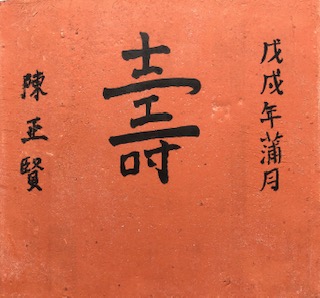 戊戌年蒲月
壽
陳亞賢